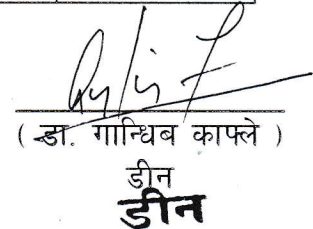 ( डा. गान्धिब काफ्ले )
डीन
डीन